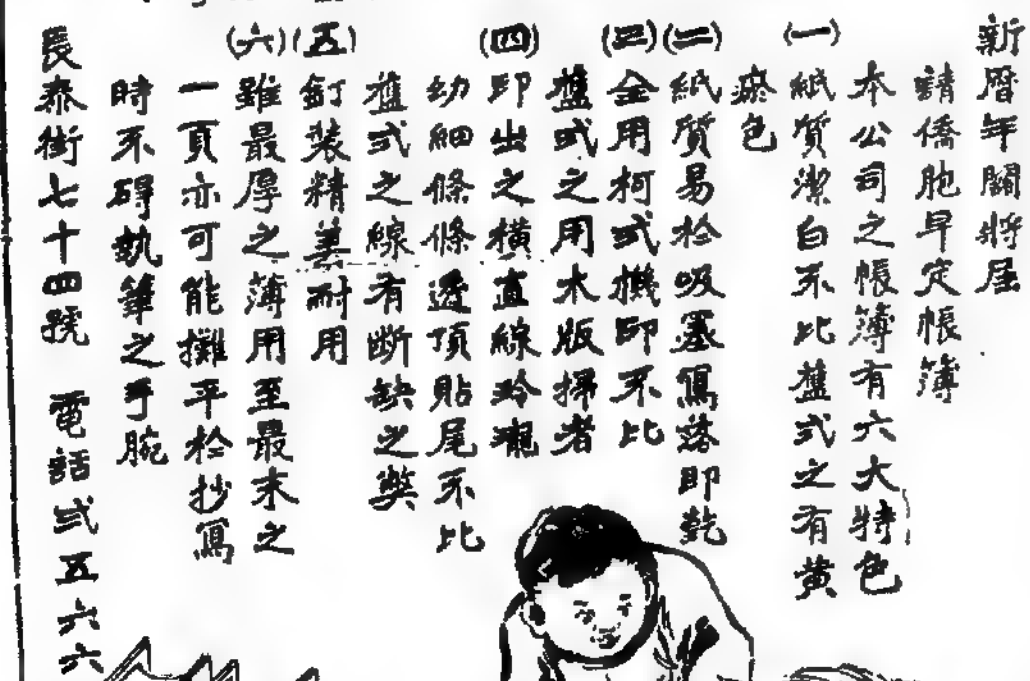 新曆年關將屆
請僑胞早定帳簿
本公司之帳簿有六大特色
(一)紙質潔白不比舊式之有黃
瘀色
(二)紙質易於吸墨寫落即乾
(三)全用柯式機印不比
舊式之用木版掃者
(四)印出之橫直線玲瓏
幼細條條透頂貼尾不比
舊式之線有断缺之弊
(五)釘裝精美耐用
(六)雖最厚之薄用至最末之
一頁亦可能攤平於抄寫
時不碍執筆之手腕
長泰街七十四號 電話弍五六六